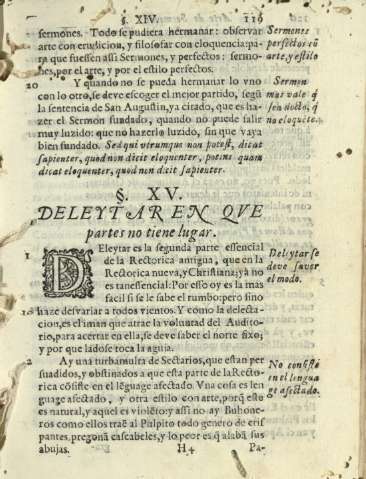 §. XIV. 119
sermones. Todo se pudiera hermanar: observar
arte con erudicion, y filosofar con eloquencia: pa-
ra que fuessen assi Sermones, y perfectos: sermo-
nes, por el arte, y por el estilo perfectos.
Sermones
perfectos cō
arte, y estilo
20 Y quando no se pueda hermanar lo vno
con lo otro, se deve escoger el mejor partido, segū
la sentencia de San Augustin, ya citado, que es ha-
zer el Sermon fundado, quando no puede salir
muy luzido: que no hazerlo luzido, sin que vaya
bien fundado. Sed qui vtrumque non potest, dicat
sapienter, quod non dicit eloquenter, potius quam
dicat eloquenter, quod non dicit sapienter.
Sermon
mas vale q̄
sea docto, q̄
no eloquēte.
§. XV.
DELEYTAR EN QVE
partes no tiene lugar.
1 DEleytar es la segunda parte essencial
de la Rectorica antigua, que en la
Rectorica nueva, y Christiana; yà no
es tan essencial: Por esso oy es la mas
facil si se le sabe el rumbo: pero sino
haze desvariar a todos vientos. Y como la delecta-
cion, es el iman que atrae la voluntad del Audito-
rio, para acertar en ella, se deve saber el norte fixo;
y por que lado se toca la aguja.
Deleytar se
deve saver
el modo.
2 Ay una turbamulta de Sectarios, que estan per
suadidos, y obstinados a que esta parte de la Recto-
rica cōsiste en el lēguage afectado. Vna cosa es len
guage afectado, y otra estilo con arte, porq̄ esto
es natural, y aquel es violēto: y assi no ay Buhone-
ros como ellos traē al Pulpito todo genero de cris
pantes, pregonā cascabeles, y lo peor es q̄ alabā sus
abujas. H4 Pa-
No consistē
en el lengua
ge afectado.